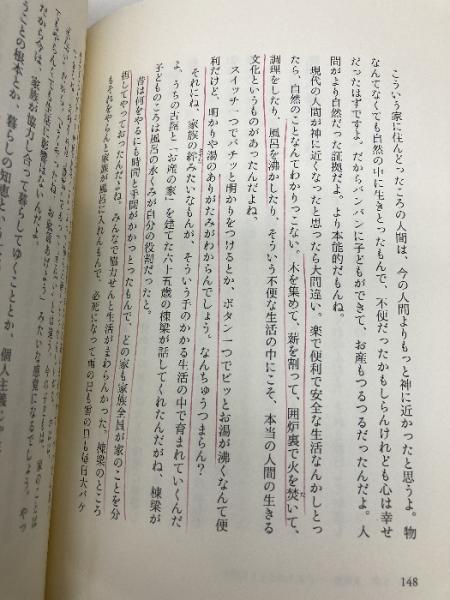 こういう家に住んどったころの人間は、今の人間よりもっと神に近かったと思うよ。物
なんてなくても自然の中に生きとったもんで、不便だったかもしらんけれども心は幸せ
だったはずですよ。だからバンバンに子どもができて、お産もつるつるだったんだよ。人
間がより自然だった証拠だよ。より本能的だもんね。
現代の人間が神に近くなったと思ったら大間違い。楽で便利で安全な生活なんかしとっ
たら、自然のことなんてわかりっこない。木を集めて、薪を割って、囲炉裏で火を焚いて、
調理をしたり、風呂を沸かしたり、そういう不便な生活の中にこそ、本当の人間の生きる
文化というものがあったんだよね。
スイッチ一つでパチッと明かりをつけるとか、ボタン一つでピッとお湯が沸くなんて便
利だけど、明かりや湯のありがたみがわからんでしょう。なんちゅうつまらん?
それにね、家族の絆みたいなもんが、そういう手のかかる生活の中で育まれていくんだ
よ。うちの古屋と「お産の家」を建てた六十五歳の棟梁が話してくれたんだがね、棟梁が
子どものころは風呂の水くみが自分の役割だったと。
昔は何をやるにも時間と手間がかかっとったもんで、どの家も家族全員が家のことを分
担してやっておったんだよね。みんなで協力せんと生活がまわらんかった。棟梁のところ
もそれをやらんと家族が風呂に入れんもんで、必死になって雨の日も雪の日も毎日大バケ
だから今は、家族が協力し合って暮らしてゆくこととか、
うことの根本とか、暮らしの知恵と
個人主義
148